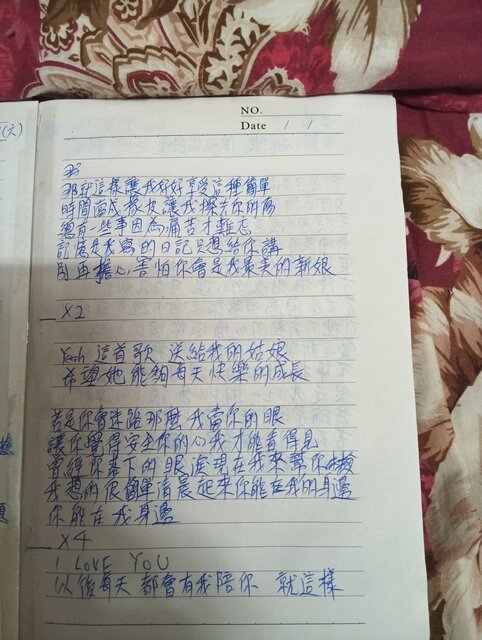 (六)
NO.
Date / /
那就這樣讓我好好享受這種簡單
時間當成橡皮讓我擦去你的傷
總有一些事因為痛苦才難忘
記憶是我寫的日記只想給你講
別再擔心害怕你會是我最美的新娘
X2
Yeah 這首歌 送給我的姑娘
希望她能夠每天快樂的成長
若是你會迷路那麼我當你的眼
讓你覺得安全你的心我才能看得見
曾經你落下的眼淚現在我來幫你擦
我想的很簡單清晨起來你能在我的身邊
你能在我身邊
X4
I LOVE YOU
以後每天都會有我陪你 就這樣